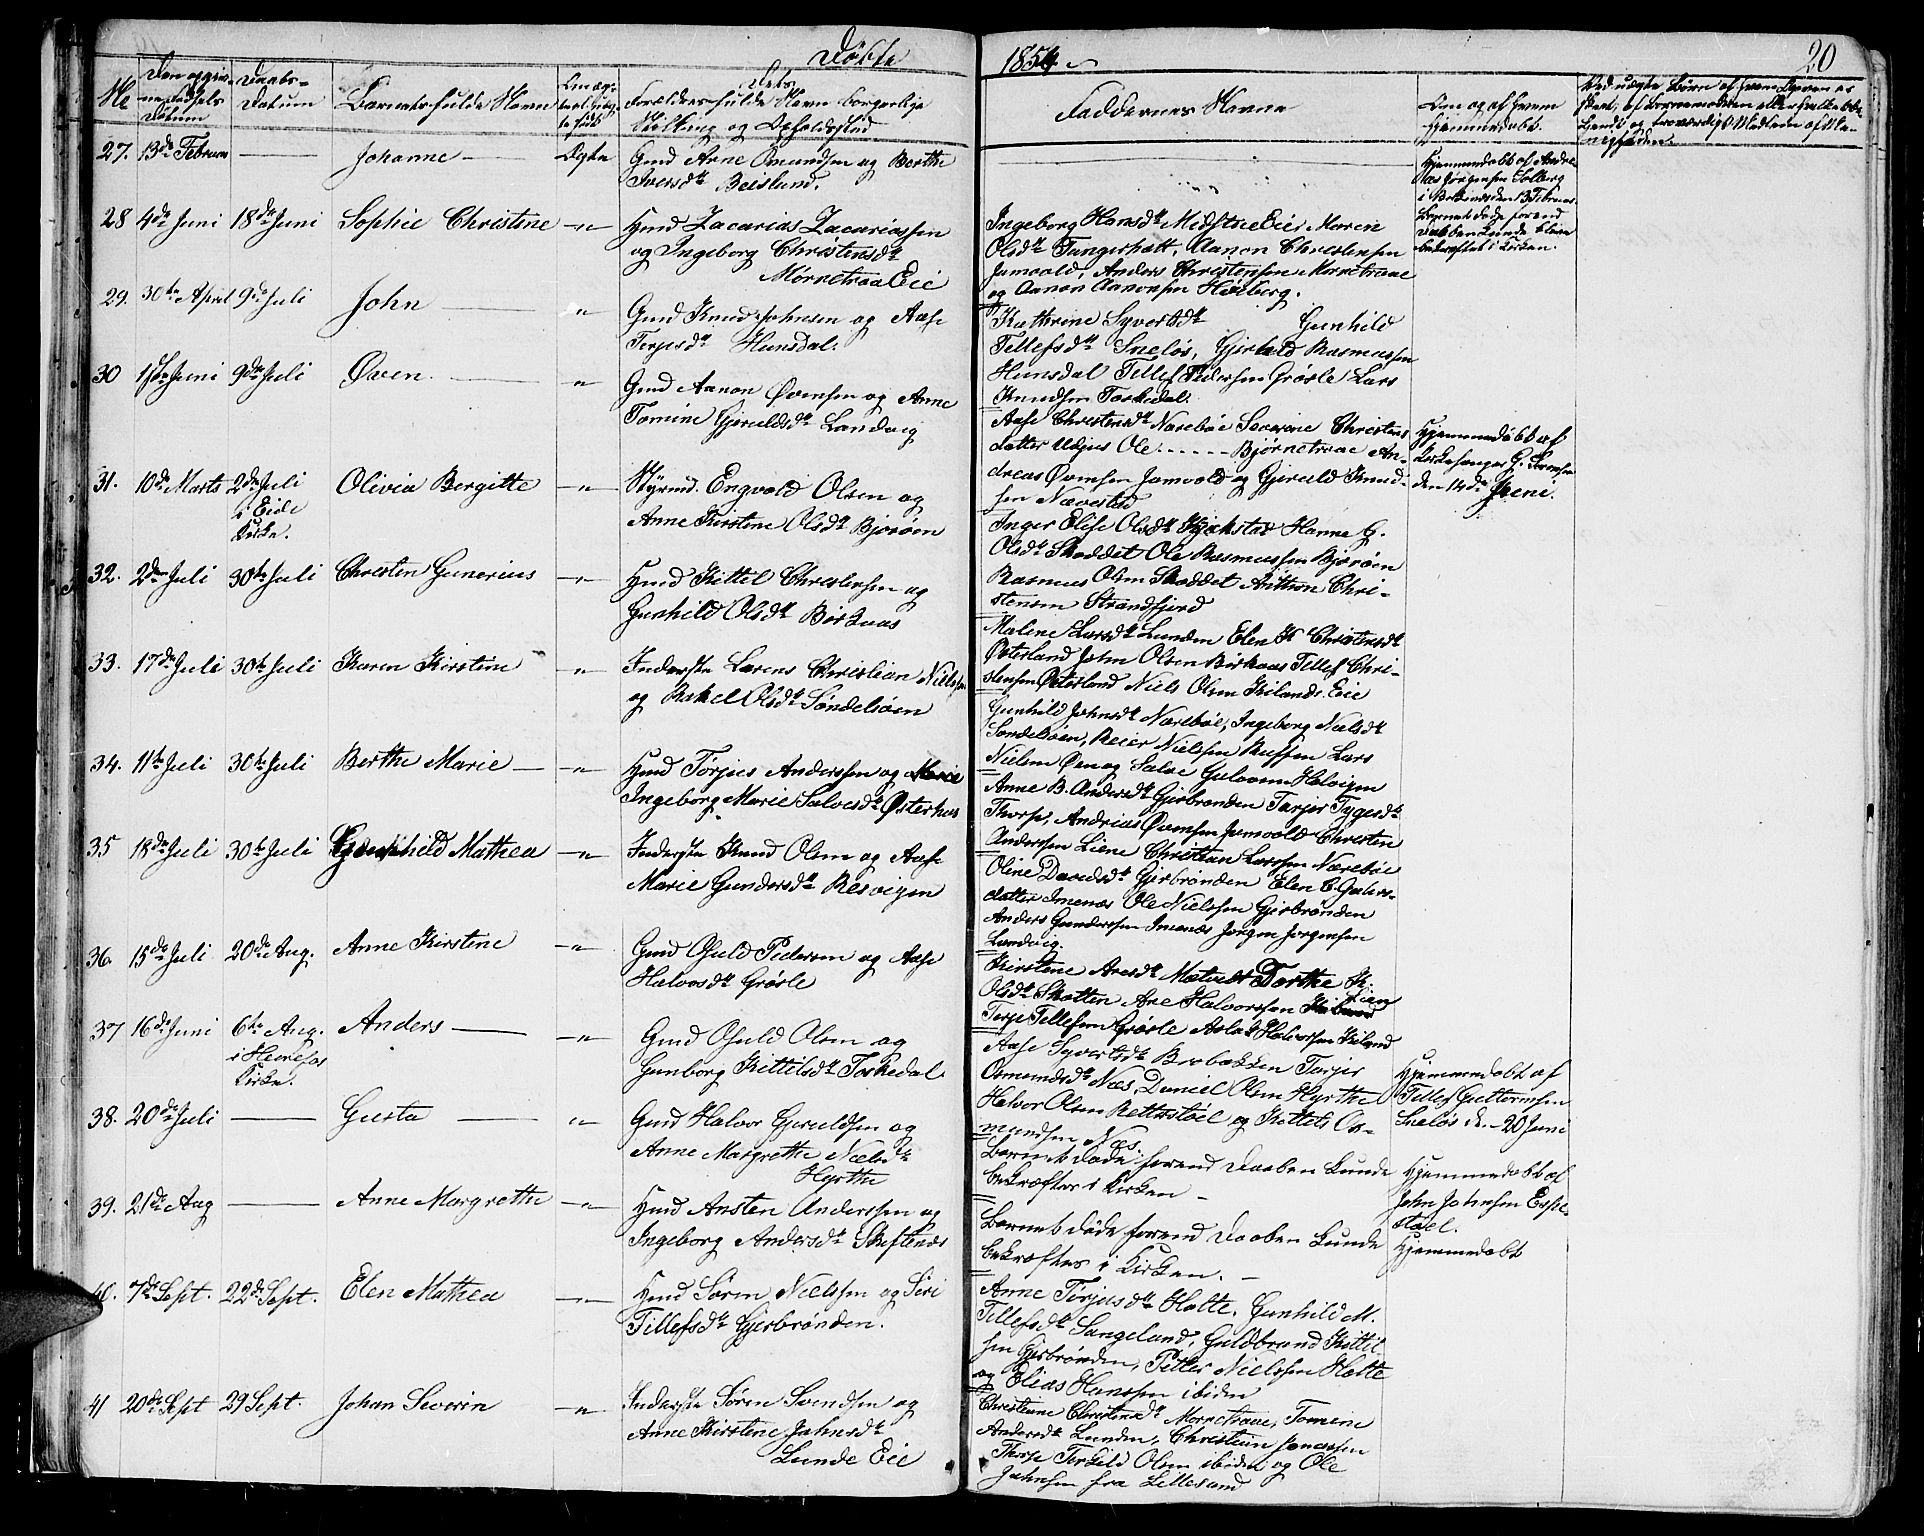 Døbte
1854
20
No
Den opgiv-
ne Fødsels
Datum
Daabs-
Datum
Barnets fulde Navn
Om æg-
te eller uæg-
te født
Dets
Forældres fulde Navn borgerlige
Stilling og Opholdssted
Faddernes Navne
Om og af hvem
hjemmedøbt.
27. 13de Februar — Johanne — Ægte Gmd Arne Omundsen og Berthe
Iversdtr Beisland.
Hjemmedøbt af Andre-
as Jørgensen Solberg
Barnet døde forend
Daaben kunde blive
bekræftet i Kirken.
28 4de Juni 18de Juni Sophie Christine —"— Hmd Zacarias Zacariassen
og Ingeborg Christensdtr
Mørnetraa Eie
Ingeborg Hansdtr Midstue Eie, Maren
Olsdtr Tungerhatt, Aanon Christensen
Jamvold, Anders Christensen Mørnetraae
og Aanon Aanonsen Heiberg.
29. 30te April 9de Juli John — " Gmd Knud Johnsen og Aase
Terjesdtr Hunsdal.
Kathrine Syvertsdtr Gunhild
Tellefsdtr Sneløs, Gjeruld Rasmussen
Hunsdal Tellef Pedersen Grøsle Lars
Knudsen Toskedal.
30 1ste Juni 9de Juli Øven. — " Gmd Aanon Øvensen og Anne
Tomine Gjeruldsdtr Landvig
Aase Christensdtr Narebøe Severine Christens
datter Udjus Ole ...... Bjørnetraae An-
dreas Øvensen Jamvold og Gjeruld Knud-
sen Nævestad
Hjemmedøbt af
Kirkesanger G.
den 14de Juni.
31. 10de Marts 2den Juli
i Eide
Kirke.
Olivia Bergitte —"— Styrmd. Engvald Olsen og
Anne Kirstine Olsdtr Bjorøen
Inger Elise Olsdtr Kjækstad Hanne G.
Olsdtr Skoddet Ole Rasmussen Bjorøen
Rasmus Olsen Skoddet Anthon Chri-
stensen Strandfjord
32. 2den Juli 30te Juli Christen Gunerius —"— Hmd Kittil Christensen og
Gunhild Olsdtr Birkaas
Malene Larsdtr Lunden Elen K Christensdtr
Østerland John Olsen Birkaas Tellef Chri-
stensen Østerland Niels Olsen Kilands Eie
33. 17de Juli 30te Juli Karen Kirstine " Inderste Lorens Christian Nielsen
og Rakel Olsdtr Søndeløen
Gunhild Johnsdtr Narebøe, Ingeborg Nielsdtr
Søndeløen, Reier Nielssen Lars
Nielsen Øen og Salve
34. 11te Juli 30te Juli Berthe Marie — —"— Hmd Torjus Anderssen og Marie
Ingeborg Marie Salvesdtr Østerhus
Anne B. Andersdtr Gjerbrønden Tarjer Tygesdtr
Thorse, Andreas Øvensen Jamvold Christen
Anderssen Liene Christian Larssen Narebøe
35 18de Juli 30te Juli Gunhild Mathea —"— Inderste Knud Olsen og Aase
Marie Gundersdtr Resvigen
Oline Davidsdtr Gjerbrønden Elen C. Gunders-
datter Imenæs Ole Nielssen Gjerbrønden
Anders Gunderssen Imenæs Jørgen Jørgensen
Landvig.
36. 15de Juli 20de Aug. Anne Kirstine —"— Gmd Osuld Pedersen og Aase
Halvorsdtr Grøsle
Kirstine Aresdtr Mætvedt Dorthe K.
Olsdtr Skotten Are Halvorssen Lien
Terje Tellefsen Grøsle Aslak Halvorssen Kiland
37 16de Juni 6te Aug.
i Herefos
Kirke.
Anders — —"— Gmd Osuld Olsen og
Gunborg Kittilsdtr Toskedal
Aase Syvertsdtr Brobakken Tarjer
Osmundsdtr Næs, Daniel Olsen Hyrthe
Halvor Olsen Retterstøel og Kettel Os-
mundsen Næs.
Hjemmedøbt af
Tellef Guttormsen
Sneløs d. 20 Juni
38. 20de Juli — Gusta — " Gmd Halvor Gjeruldsen og
Anne Margrethe Nielsdtr
Hyrthe
Barnet døde forend Daaben kunde
bekræftes i Kirken —
Hjemmedøbt af
John Johnsen Espe-
støel.
39. 21de Aug — Anne Margrethe —"— Hmd Ansten Anderssen og
Ingeborg Andersdtr Skiftenæs
Barnet døde forend Daaben kunde
bekræftes i Kirken. —
Hjemmedøbt
40. 7de Sept. 22de Sept. Elen Mathea —"— Hmd Søren Nielssen og Siri
Tillefsdtr Gjerbrønden.
Anne Torjusdtr Holte, Gunhild M.
Tillefsdtr Sangeland, Guldbrand Kittil-
sen Gjerbrønden, Petter Nielssen Holte
og Elias Hanssen ibiden
41 20de Sept 29 Sept. Johan Severin —"— Inderste Søren Svendsen og
Anne Kirstine Johnsdtr
Lunde Eie
Christiane Christensdtr Mornetraae, Tomine
Andersdtr Lunden, Christian Jonassen
Thorse Terkild Olsen ibiden og Ole
Johnsen fra Lillesand